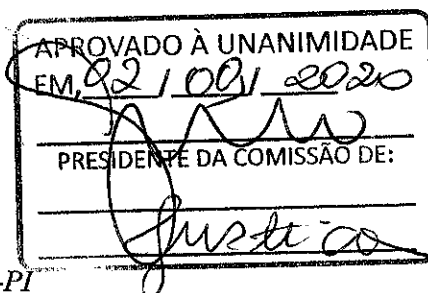 APROVADO À UNANIMIDADE
EM, 02 / 09 / 2020
PRESIDENTE DA COMISSÃO DE:
Justiça
-PI